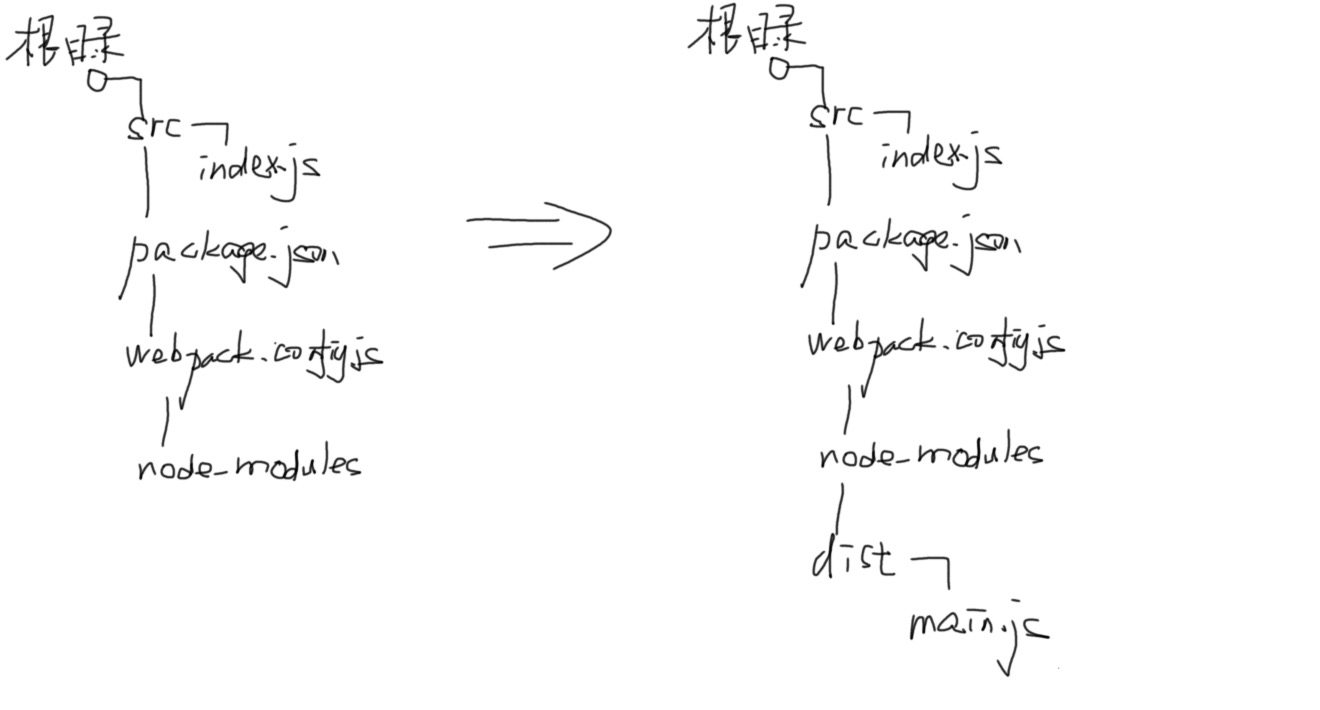 根目录
src
index.js
package.json
webpack.config.js
node_modules
根目录
src
index.js
package.json
webpack.config.js
node_modules
dist
main.js